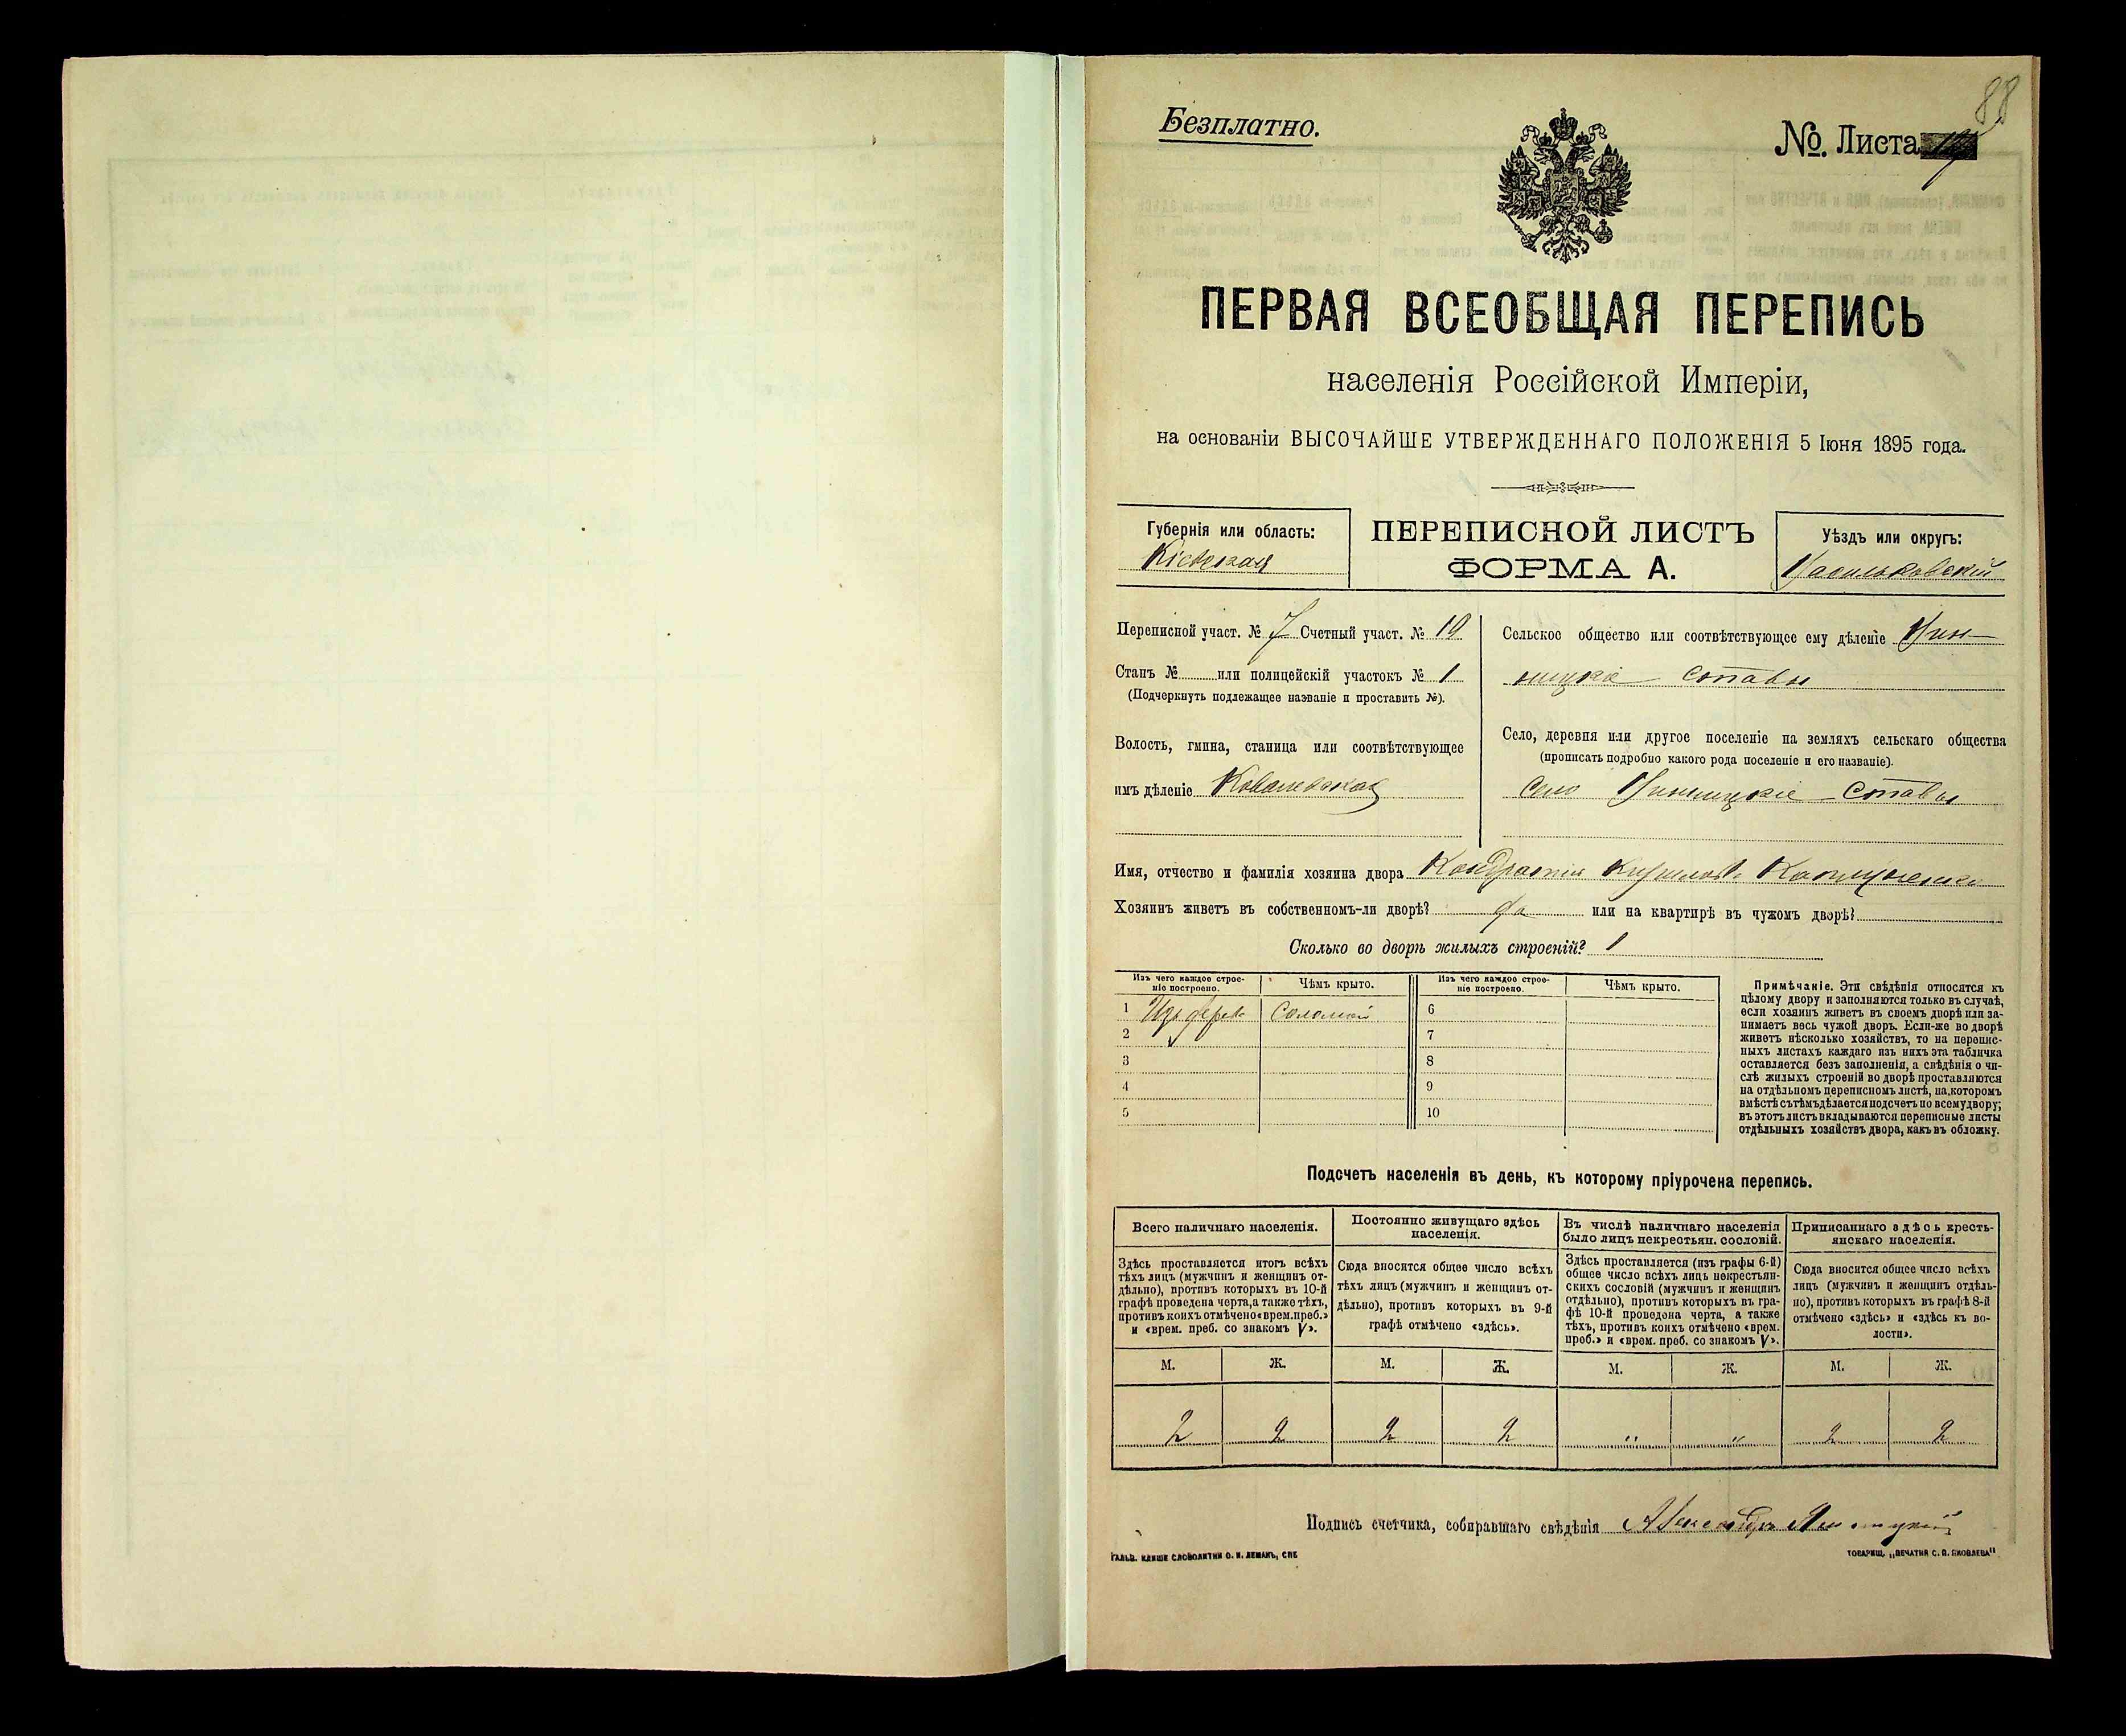 88
Безплатно.
№. Листа
ПЕРВАЯ ВСЕОБЩАЯ ПЕРЕПИСЬ
населенія Россійской Имперіи,
на основаніи ВЫСОЧАЙШЕ УТВЕРЖДЕННАГО ПОЛОЖЕНІЯ 5 Іюня 1895 года.
Губернія или область:
Кіевская
ПЕРЕПИСНОЙ ЛИСТЪ
ФОРМА А.
Уѣздъ или округъ:
Васильковскій
Переписной участ. № 7 Счетный участ. № 19
Станъ № или полицейскій участокъ № 1
(Подчеркнуть подлежащее названіе и проставить №).
Волость, гмина, станица или соотвѣтствующее
имъ дѣленіе Ковалевская
Сельское общество или соотвѣтствующее ему дѣленіе Вин-
ницкіе Ставы
Село, деревня или другое поселеніе на земляхъ сельскаго общества
(прописать подробно какого рода поселеніе и его названіе).
Село Винницкіе-Ставы
Имя, отчество и фамилія хозяина двора Кондратій Кириловъ
Хозяинъ живетъ въ собственномъ-ли дворѣ? да или на квартирѣ въ чужомъ дворѣ?
Сколько во дворѣ жилыхъ строеній? 1
Изъ чего каждое строе-
ніе построено.
Чѣмъ крыто.
Изъ чего каждое строе-
ніе построено.
Чѣмъ крыто.
1 Изъ дерева Соломой 6
2 7
3 8
4 9
5 10
Примѣчаніе. Эти свѣдѣнія относятся къ
цѣлому двору и заполняются только въ случаѣ,
если хозяинъ живетъ въ своемъ дворѣ или за-
нимаетъ весь чужой дворъ. Если-же во дворѣ
живетъ нѣсколько хозяйствъ, то на перепис-
ныхъ листахъ каждаго изъ нихъ эта табличка
оставляется безъ заполненія, а свѣдѣнія о чи-
слѣ жилыхъ строеній во дворѣ проставляются
на отдѣльномъ переписномъ листѣ, на которомъ
вмѣстѣ съ тѣмъ дѣлается подсчетъ по всему двору;
въ этотъ листъ вкладываются переписные листы
отдѣльныхъ хозяйствъ двора, какъ въ обложку.
Подсчетъ населенія въ день, къ которому пріурочена перепись.
Всего наличнаго населенія.
Постоянно живущаго здѣсь
населенія.
Въ числѣ наличнаго населенія
было лицъ некрестьян. сословій.
Приписаннаго здѣсь кресть-
янскаго населенія.
Здѣсь проставляется итогъ всѣхъ
тѣхъ лицъ (мужчинъ и женщинъ от-
дѣльно), противъ которыхъ въ 10-й
графѣ проведена черта, а также тѣхъ,
противъ коихъ отмѣчено «врем. преб.»
и «врем. преб. со знакомъ V».
Сюда вносится общее число всѣхъ
тѣхъ лицъ (мужчинъ и женщинъ от-
дѣльно), противъ которыхъ въ 9-й
графѣ отмѣчено «здѣсь».
Здѣсь проставляется (изъ графы 6-й)
общее число всѣхъ лицъ некрестьян-
скихъ сословій (мужчинъ и женщинъ
отдѣльно), противъ которыхъ въ гра-
фѣ 10-й проведена черта, а также
тѣхъ, противъ коихъ отмѣчено «врем.
преб.» и «врем. преб. со знакомъ V».
Сюда вносится общее число всѣхъ
лицъ (мужчинъ и женщинъ отдѣль-
но), противъ которыхъ въ графѣ 8-й
отмѣчено «здѣсь» и «здѣсь къ во-
лости».
М. Ж. М. Ж. М. Ж. М. Ж.
2 2 2 2 " " 2 2
Подпись счетчика, собиравшаго свѣдѣнія Александръ
ГАЛЬВ. КЛИШЕ СЛОВОЛИТНИ О. И. ЛЕМАНЪ, СПБ
ТОВАРИЩ. „ПЕЧАТНЯ С. П. ЯКОВЛЕВА"